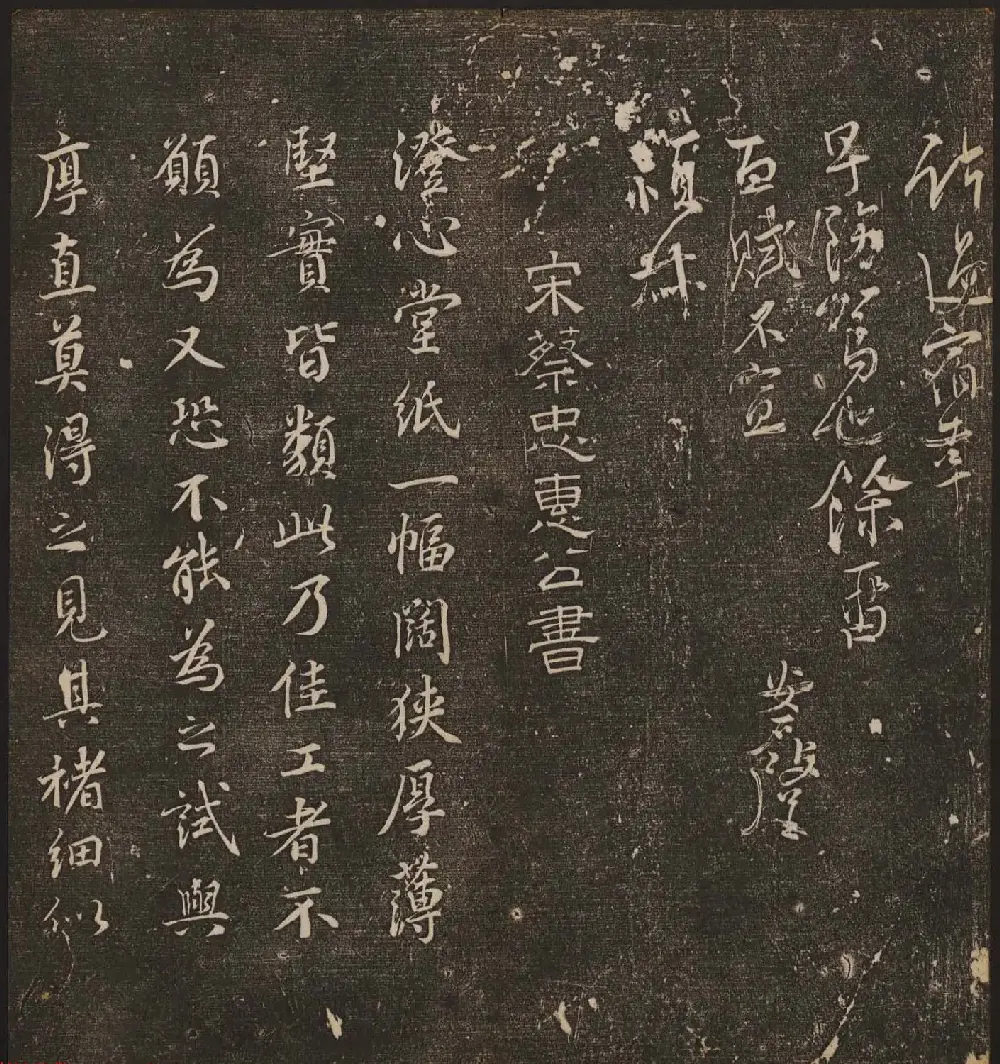 過宿幸
早餘留
面賦不宣
宋蔡忠惠公書
澄心堂紙一幅闊狹厚薄
堅實皆類此乃佳工者不
願為又恐不能為之試與
厚直莫得之見其楮細似